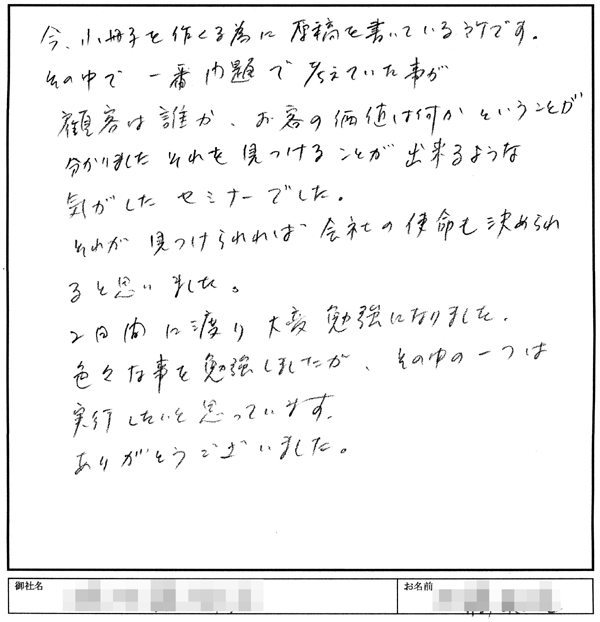 今、小冊子を作くる為に原稿を書いている所です。
その中で一番問題で考えていた事が
顧客は誰か、お客の価値は何かということが
分かりました それを見つけることが出来るような
気がした セミナーでした。
それが見つけられれば 会社の使命も決められ
ると思いました。
2日間に渡り大変勉強になりました。
色々な事を勉強しましたが、その中の一つは
実行したいと思っています。
ありがとうございました。
御社名
お名前